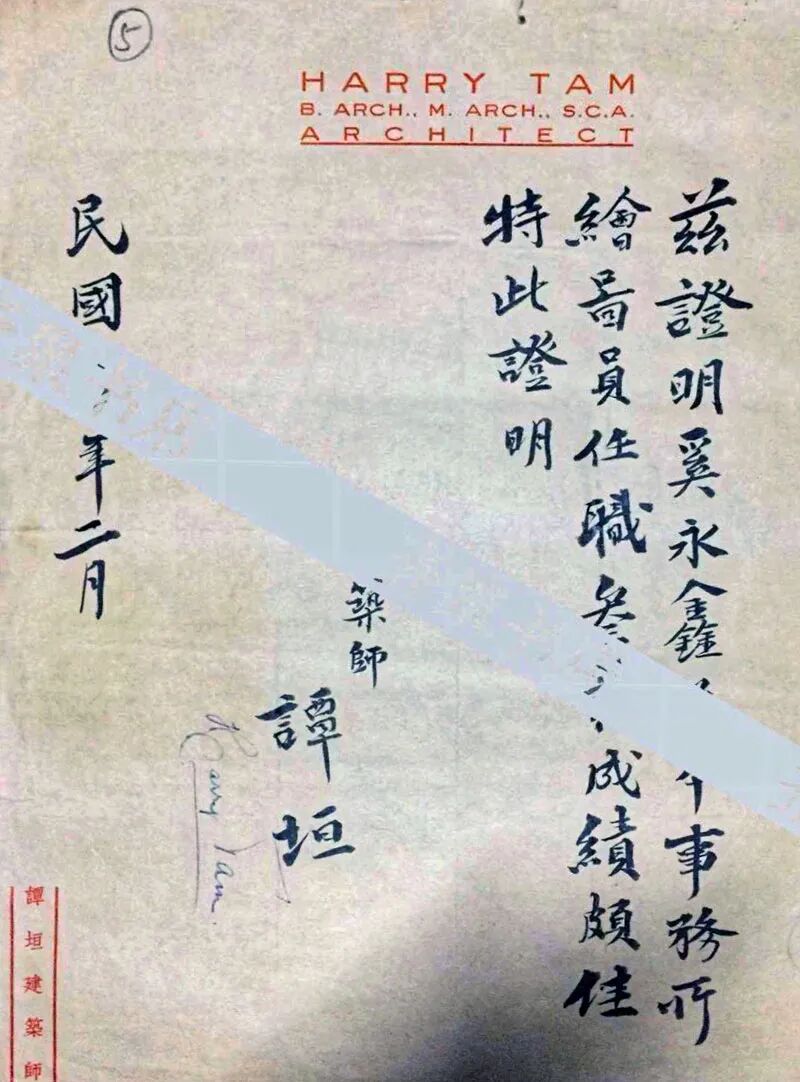 5
HARRY TAM
B. ARCH., M. ARCH., S.C.A.
ARCHITECT
茲證明奚永鑫 事務所
繪圖員任職叁 成績頗佳
特此證明
築師
譚垣
Harry Tam
民國 年二月
譚垣建築師